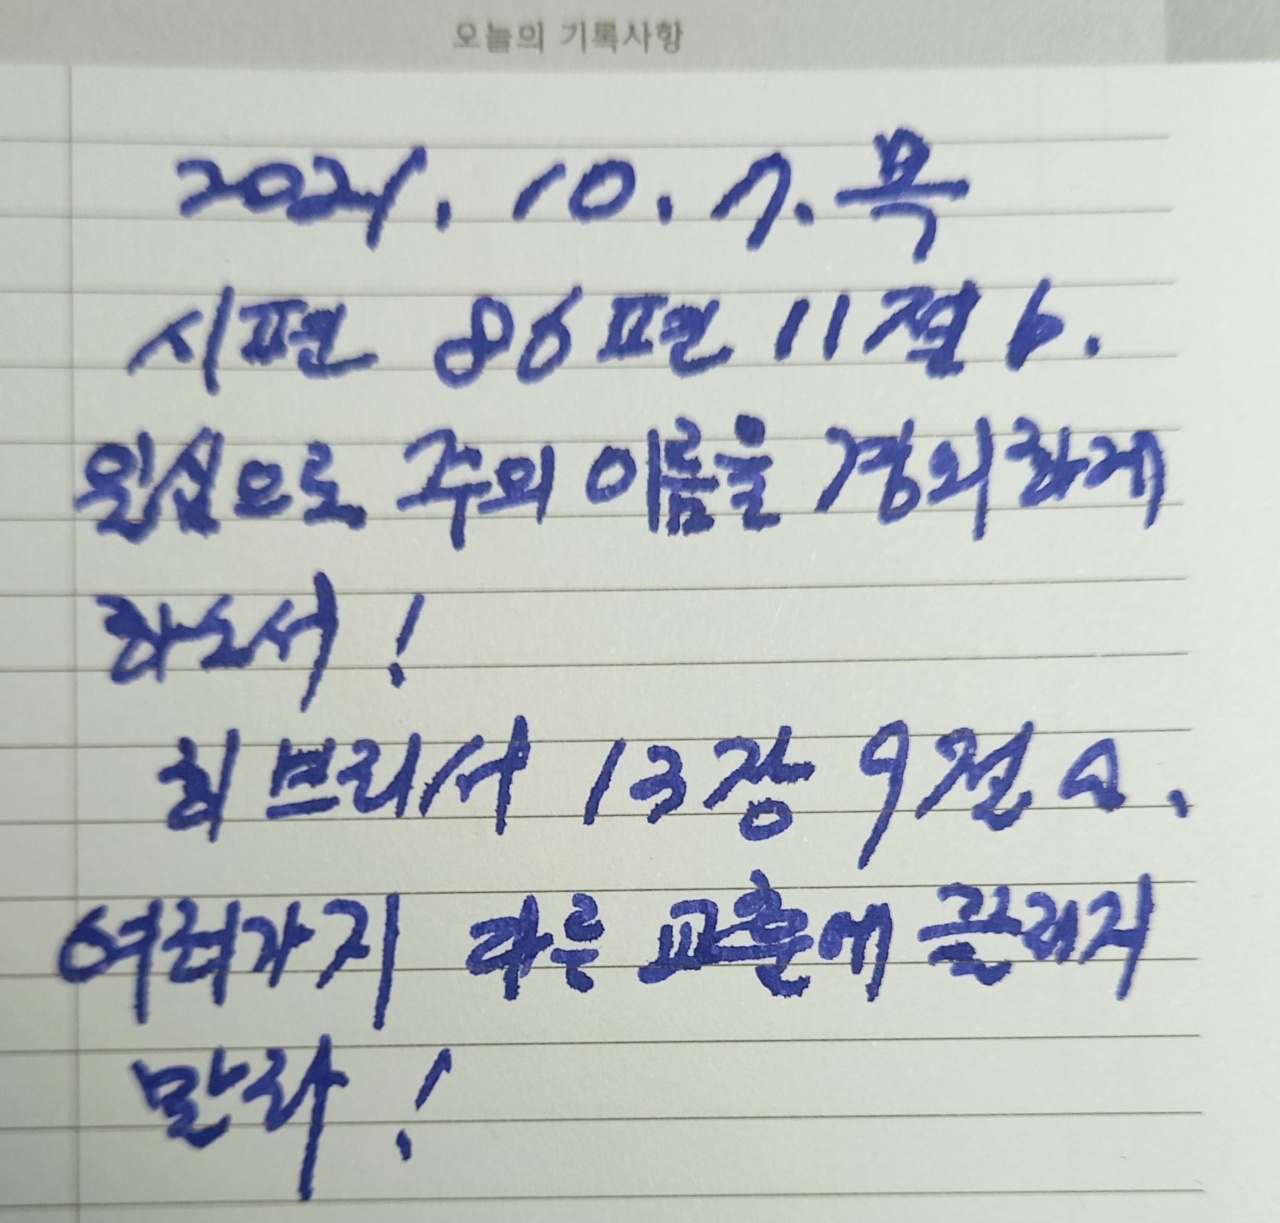 오늘의 기록사항
2021. 10. 7. 목
시편 86편 11절 b.
일심으로 주의 이름을 경외하게
하소서!
히브리서 13장 9절 a.
여러가지 다른 교훈에 끌리지
말라!